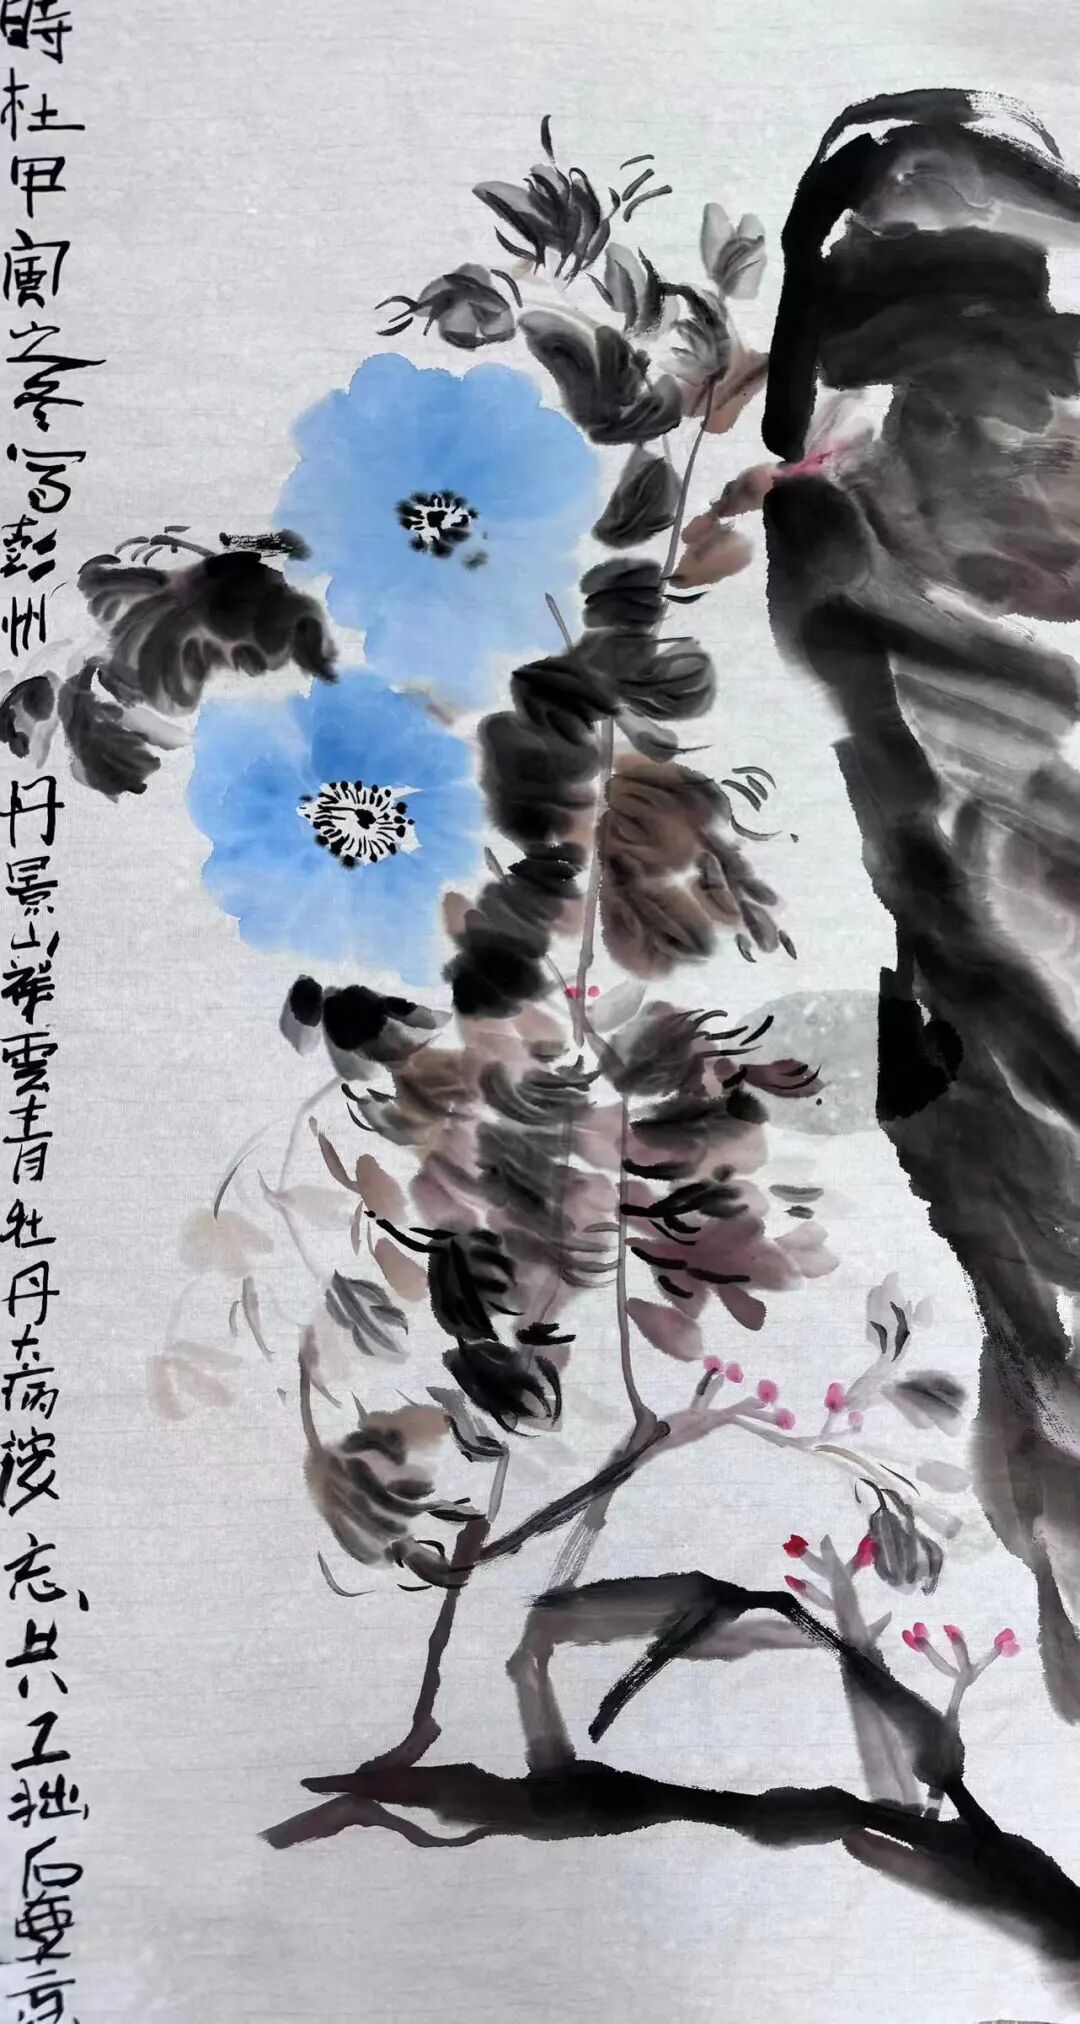 時杜甲寅之冬寫彭州丹景山祥雲青牡丹大病後忘其工拙石要